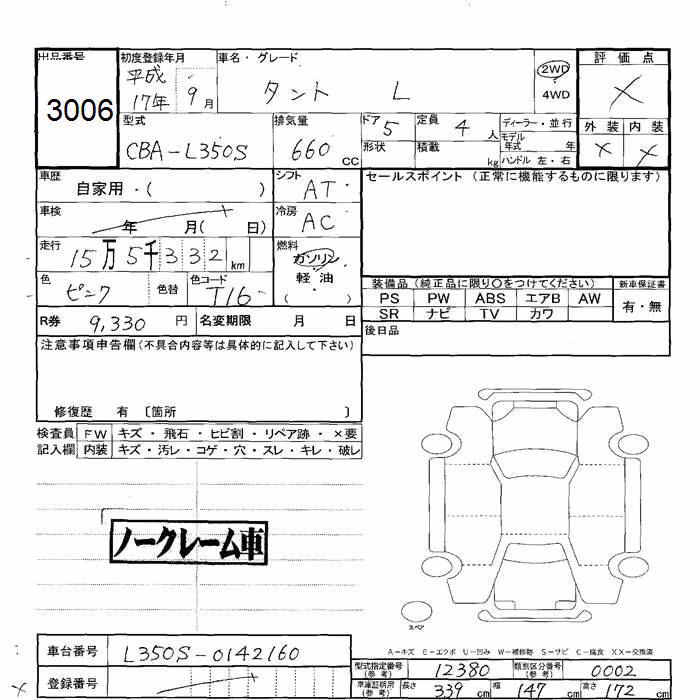 出品番号 初度登録年月 車名・グレード 評価点
3006 平成17年 9月 タント L 2WD 4WD X
型式 排気量 ドア 5 定員 4人 ディーラー・並行 外装 内装
CBA-L350S 660cc 形状 積載 kg モデル年式 年 X X
ハンドル 左・右
車歴 自家用・( ) シフト AT セールスポイント (正常に機能するものに限ります)
車検 年 月( 日) 冷房 AC
走行 15万5千332km 燃料 ガソリン
色 ピンク 色替 色コード T16 軽油 ( )
装備品 (純正品に限り○をつけてください) 新車保証書
PS PW ABS エアB AW 有・無
SR ナビ TV カワ
R券 9,330円 名変期限 月 日 後日品
注意事項申告欄 (不具合内容等は具体的に記入して下さい)
修復歴 有 〔箇所 〕
検査員 FW キズ・飛石・ヒビ割・リペア跡・×要
記入欄 内装 キズ・汚レ・コゲ・穴・スレ・キレ・破レ
ノークレーム車
スペア
A-キズ E-エクボ U-凹み W-補修跡 S-サビ C-腐食 XX-交換済
車台番号 L350S-0142160 型式指定番号(参考) 12380 類別区分番号(参考) 0002
登録番号 車庫証明用(参考) 長さ 339cm 幅 147cm 高さ 172cm